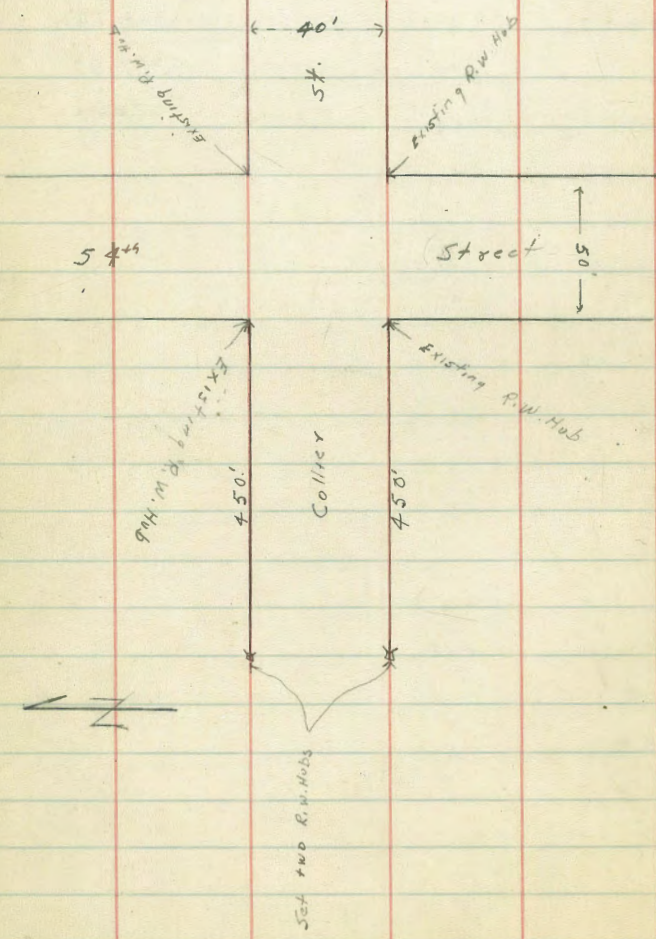 40'
St.
Existing R.W. Hub
Existing R.W. Hub
54th
Street
50'
Existing R.W. Hub
Existing R.W. Hub
450'
Collier
450'
N
Set two R.W. Hubs